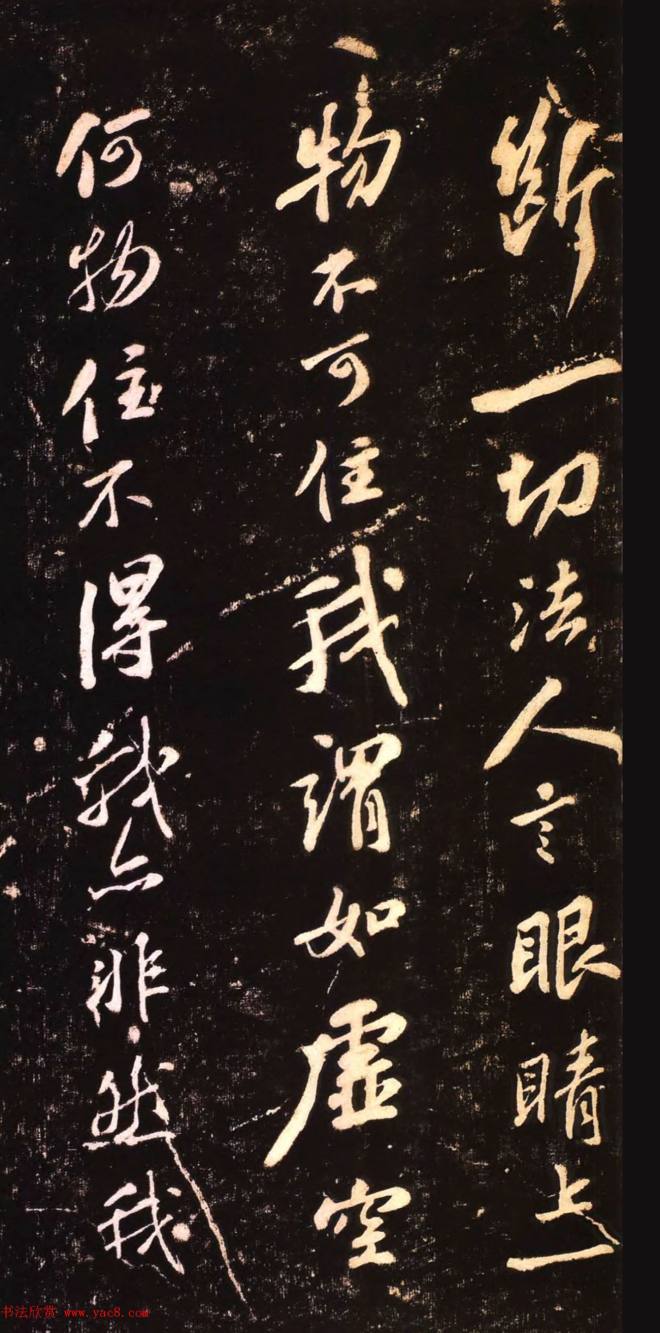 断一切法人言眼睛上
一物不可住我謂如虛空
何物住不得我亦非然我
书法欣赏 www.yac8.com